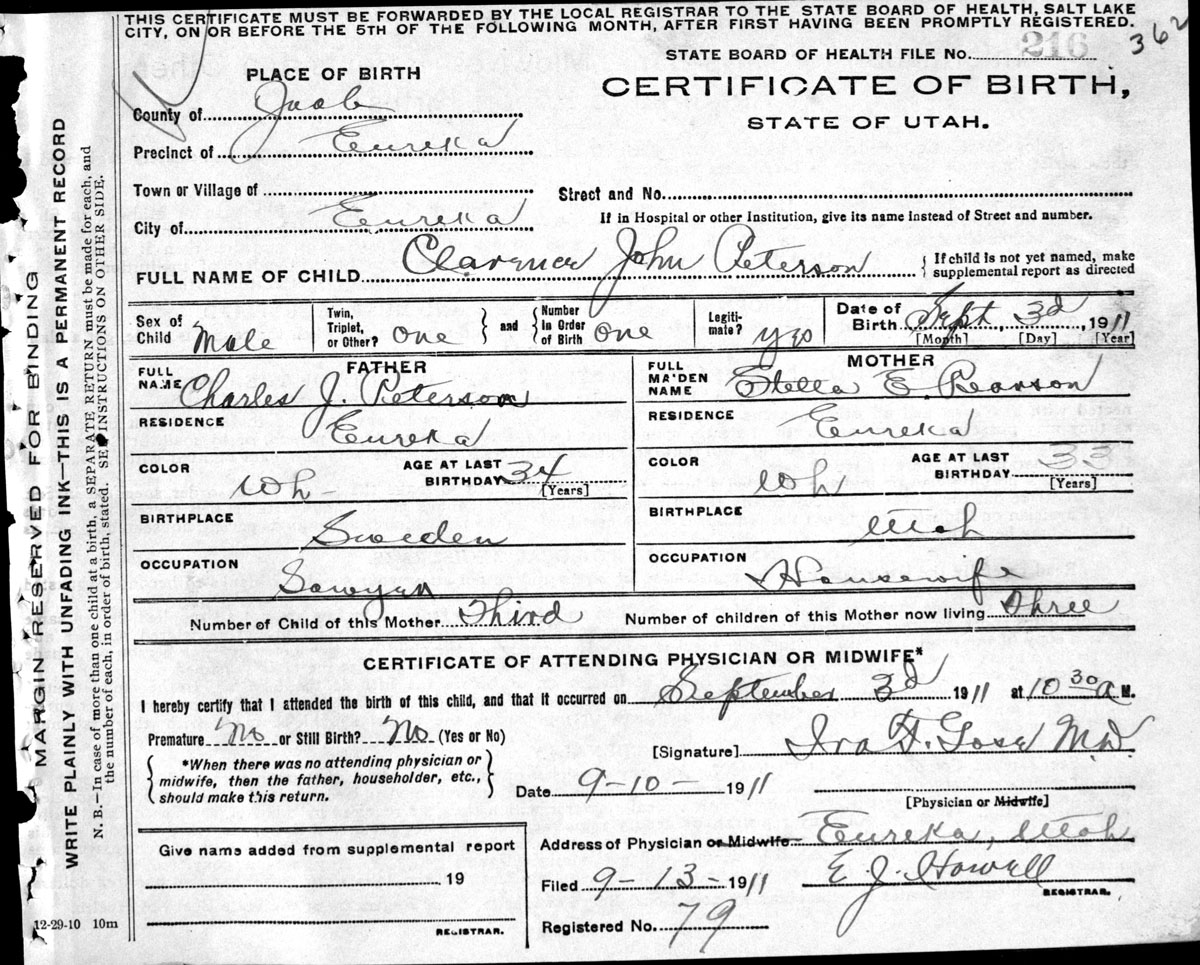 THIS CERTIFICATE MUST BE FORWARDED BY THE LOCAL REGISTRAR TO THE STATE BOARD OF HEALTH, SALT LAKE
CITY, ON OR BEFORE THE 5TH OF THE FOLLOWING MONTH, AFTER FIRST HAVING BEEN PROMPTLY REGISTERED.
362
STATE BOARD OF HEALTH FILE No. 216
CERTIFICATE OF BIRTH,
STATE OF UTAH.
PLACE OF BIRTH
County of Juab
Precinct of Eureka
Town or Village of
Street and No.
City of Eureka
If in Hospital or other Institution, give its name instead of Street and number.
FULL NAME OF CHILD Clarence John Peterson
{ If child is not yet named, make
supplemental report as directed
Sex of Child Male
Twin, Triplet, or Other? One } and { Number in Order of Birth One
Legiti- mate? yes
Date of Birth Sept 3d, 1911
[Month] [Day] [Year]
FATHER
FULL NAME Charles J. Peterson
RESIDENCE Eureka
COLOR Wh- AGE AT LAST BIRTHDAY 34
[Years]
BIRTHPLACE Sweden
OCCUPATION Sawyer
MOTHER
FULL MAIDEN NAME Stella E. Pearson
RESIDENCE Eureka
COLOR Wh AGE AT LAST BIRTHDAY 33
[Years]
BIRTHPLACE Utah
OCCUPATION Housewife
Number of Child of this Mother Third Number of children of this Mother now living Three
CERTIFICATE OF ATTENDING PHYSICIAN OR MIDWIFE*
I hereby certify that I attended the birth of this child, and that it occurred on September 3d 1911 at 10 30 a M.
Premature No or Still Birth? No (Yes or No)
[Signature] Ira F. M.D.
{ *When there was no attending physician or
midwife, then the father, householder, etc.,
should make this return. }
Date 9-10- 1911
[Physician or Midwife]
Address of Physician or Midwife Eureka, Utah
Give name added from supplemental report
19
REGISTRAR.
Filed 9-13- 1911 E. J. Howell
REGISTRAR.
Registered No. 79
12-29-10 10m
MARGIN RESERVED FOR BINDING
WRITE PLAINLY WITH UNFADING INK—THIS IS A PERMANENT RECORD
N. B.—In case of more than one child at a birth, a SEPARATE RETURN must be made for each, and
the number of each, in order of birth, stated. SEE INSTRUCTIONS ON OTHER SIDE.